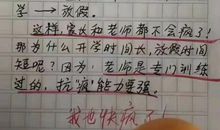 学→放假。
这样,家长和老师都不会疯了!
那为什么开学时间长,放假时间
短呢?因为,老师是专门训练
过的,抗疯能力要强。
我也快疯了!